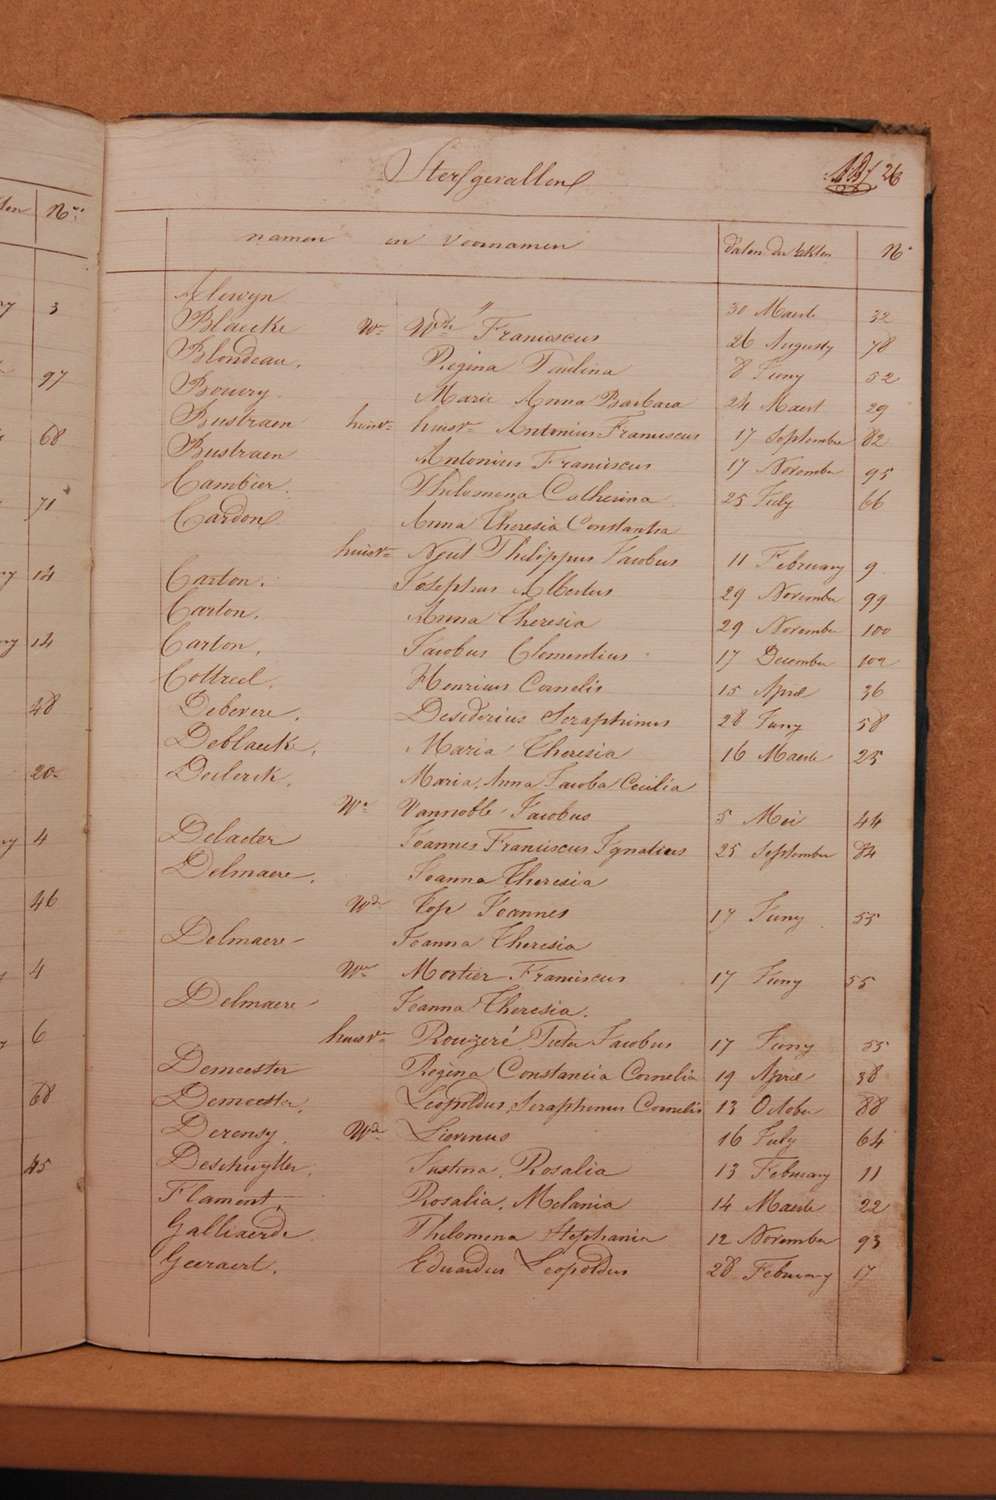 Sterfgevallen 26
namen en Voornamen daten der Akten N°
30 Maerte 32
Blaecke We Franciscus 26 Augusty 78
Blondeau. Regina Paulina 8 Juny 52
Bouvry. Marie Anna Barbara 24 Maert 29
Bustraen huisve huisve Antonius Franciscus 17 September 82
Bustraen Antonius Franciscus 17 November 95
Cambier. Philomena Catherina 25 July 66
Cardon Anna Theresia Constantia
huisve Philippus Jacobus 11 February 9
Carton. Josephus Albertus 29 November 99
Carton. Anna Theresia 29 November 100
Carton. Jacobus Clementius 17 December 102
Cottreel. Henricus Cornelis 15 April 36
Debevere. Desederius Seraphinus 28 Juny 58
Deblaeck. Maria Theresia 16 Maerte 25
Declerck. Maria Anna Jacoba Cecilia
We Vannoble Jacobus 5 Mei 44
Delaeter Joannes Franciscus Ignatius 25 September 84
Delmaere. Joanna Theresia
We Top Joannes 17 Juny 55
Delmaere - Joanna Theresia
We Mortier Franciscus 17 Juny 55
Delmaere - Joanna Theresia.
huisve Rouzeré Pieter Jacobus 17 Juny 55
Demeester Regina Constancia Cornelia 19 April 38
Demeester. Leopoldus Seraphinus Cornelis 13 October 88
Derensy. We Lievenus 16 July 64
Deschuytter. Justina Rosalia 13 February 11
Flament. Rosalia. Melania 14 Maerte 22
Galliaerde. Philomena Stephania 12 November 93
Geeraert. Eduardus Leopoldus 28 February 17
N°
3
97
68
71
14
14
48
20
4
46
4
6
68
45